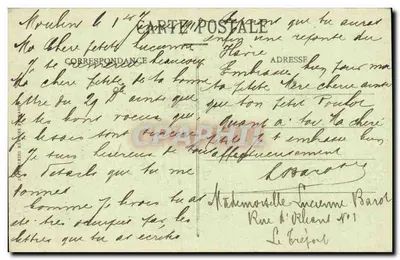 CARTE POSTALE
CORRESPONDANCE
ADRESSE
Moulins le 1er
Ma chère petite Lucienne
Je te remercie beaucoup
Ma chère petite de ta bonne
lettre du 29 Dbre ainsi que
de tes bons voeux que
je
Je suis heureuse de tous
les détails que tu me
donnes
Comme je vois tu as
été très occupée par les
lettres que tu as écrites
que tu auras
enfin une réponse du
Havre
Embrasse bien pour moi
ta petite Mère chérie ainsi
que ton petit
Quant à toi ma chère
petite je t'embrasse bien
affectueusement
L Barot
Mademoiselle Lucienne Barot
Rue d'Orléans N°1
Le Tréport